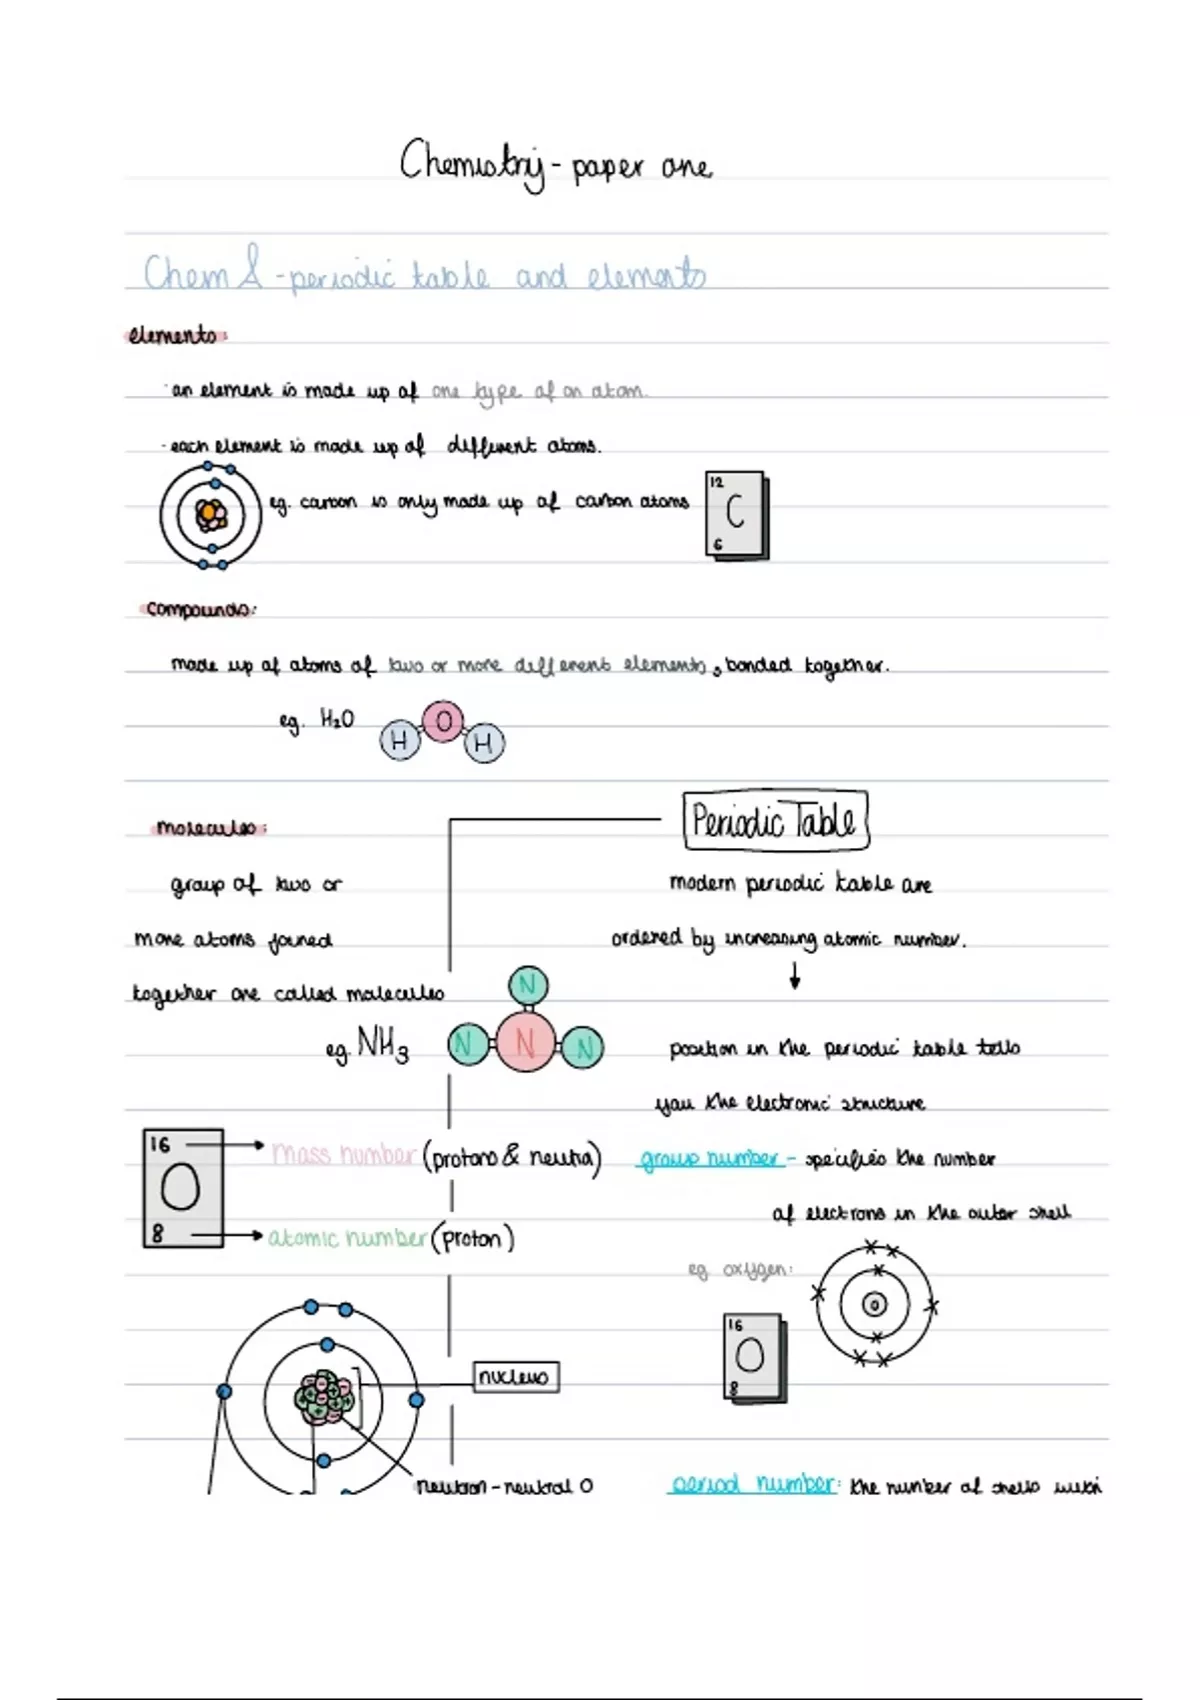 Chemistry - paper one
Chem 1 - periodic table and elements
elements:
· an element is made up of one type of an atom.
· each element is made up of different atoms.
eg. carbon is only made up of carbon atoms
12
C
6
compounds:
made up of atoms of two or more different elements, bonded together.
eg. H₂O
H O H
molecules:
group of two or
more atoms joined
together are called molecules
eg. NH₃
N
N N N
16
O
8
mass number (protons & neutra)
atomic number (proton)
nucleus
neutron - neutral 0
Periodic Table
modern periodic table are
ordered by increasing atomic number.
position in the periodic table tells
you the electronic structure
group number - specifies the number
of electrons in the outer shell
eg oxygen:
16
O
8
O
period number: the number of shells with